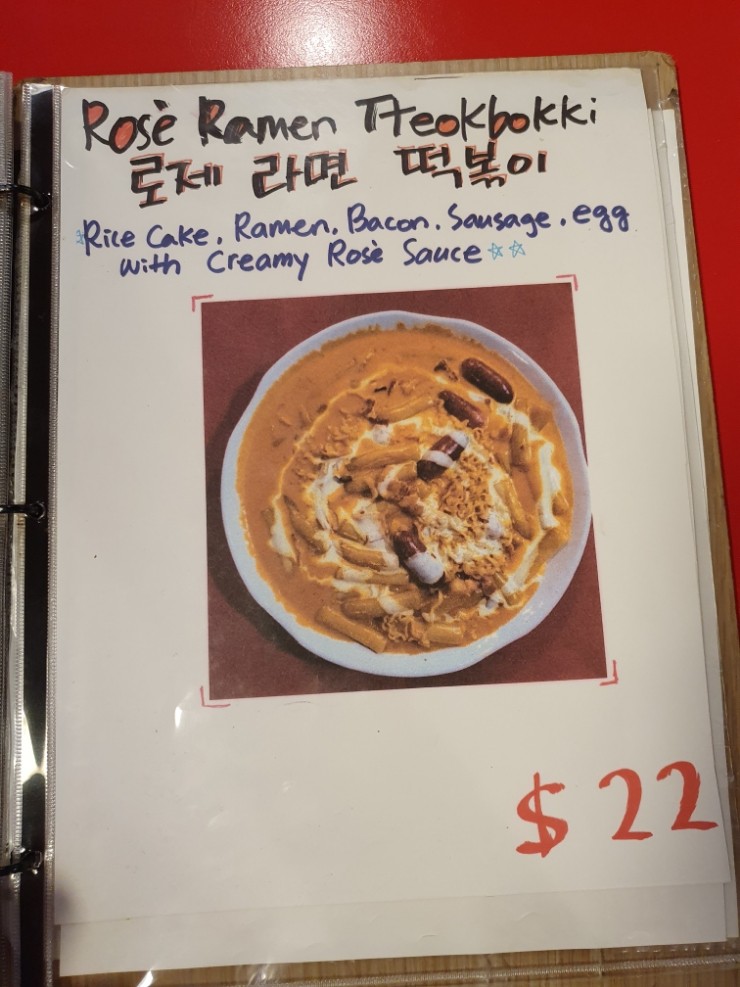 Rosè Ramen Tteokbokki
로제 라면 떡볶이
Rice Cake, Ramen. Bacon. Sausage. egg
with Creamy Rosè Sauce
$22